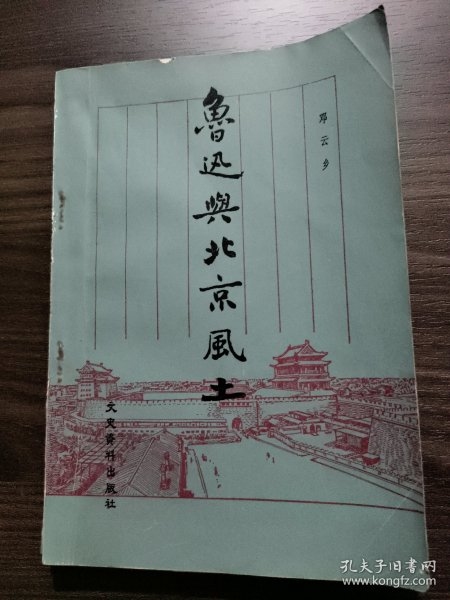 魯迅與北京風土
邓云乡
文史资料出版社
孔夫子旧书网
www.kongfz.com